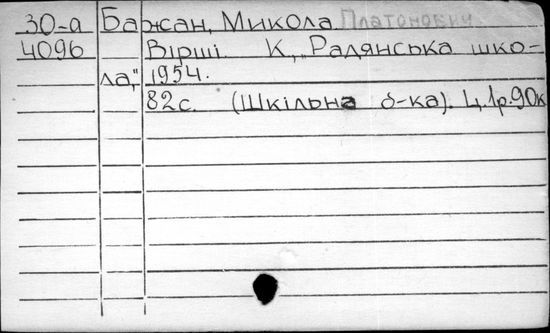 30-а Бажан, Микола Платонович
4096 Вірші. К., „Радянська шко-
ла", 1954.
82с. (Шкільна б-ка). Ц.1р.90к